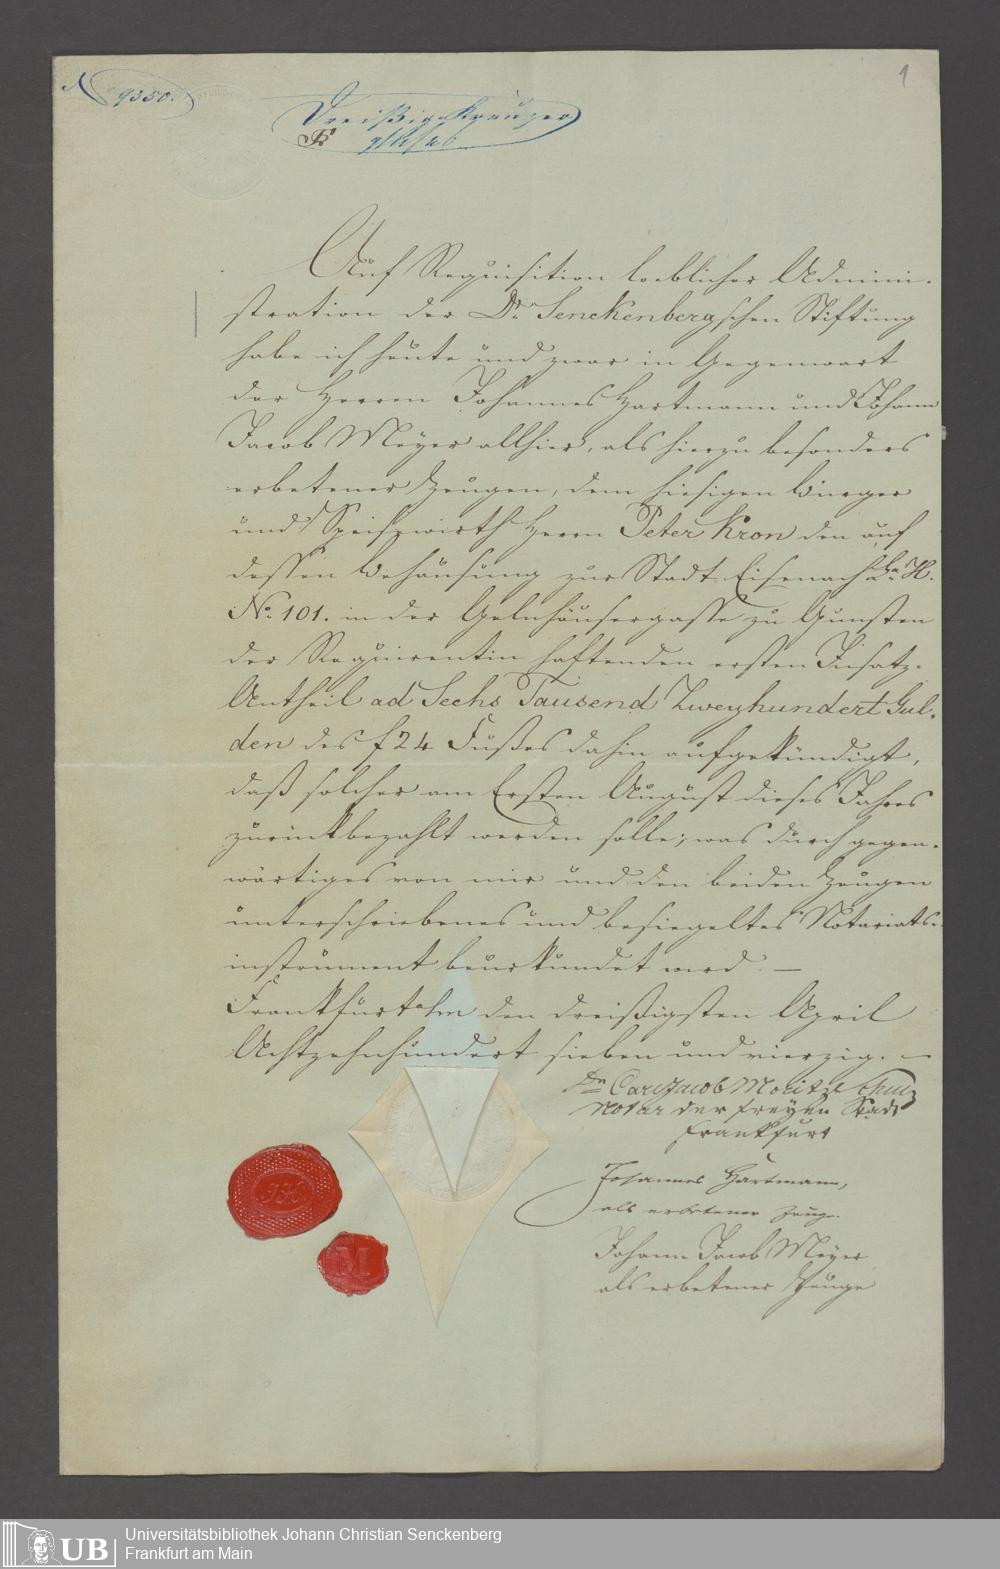 N 9350.
1
Dreißig Kreuzer
Auf Requisition loeblicher Admini-
stration der Dr. Senckenbergschen Stiftung
habe ich heute und zwar in Gegenwart
der Herren Johannes Hartmann und Johann
Jacob Meyer allhier, als hierzu besonders
erbetener Zeugen, dem hiesigen Bürger
und Speisewirth Herrn Peter Kron den auf
dessen Behausung zur Stadt Eisenach La. H.
No. 101. in der Gelnhäusergasse zu Gunsten
der Requirentin haftenden ersten Insatz-
Antheil ad Sechs Tausend Zweyhundert Gul-
den des f24 Fußes dahin aufgekündigt,
daß solcher am Ersten August dieses Jahres
zurückbezahlt werden solle; was durch gegen-
wärtiges von mir und den beiden Zeugen
unterschriebenes und besiegeltes Notariats-
instrument beurkundet wird. —
Frankfurt a/m den dreißigsten April
Achtzehnhundert sieben und vierzig. —
Dr. Carl Jacob Moritz
Notar der freyen Stadt
Frankfurt
Johannes Hartmann,
als erbetener Zeuge.
Johann Jacob Meyer
als erbetener Zeuge
JH
M
UB
Universitätsbibliothek Johann Christian Senckenberg
Frankfurt am Main